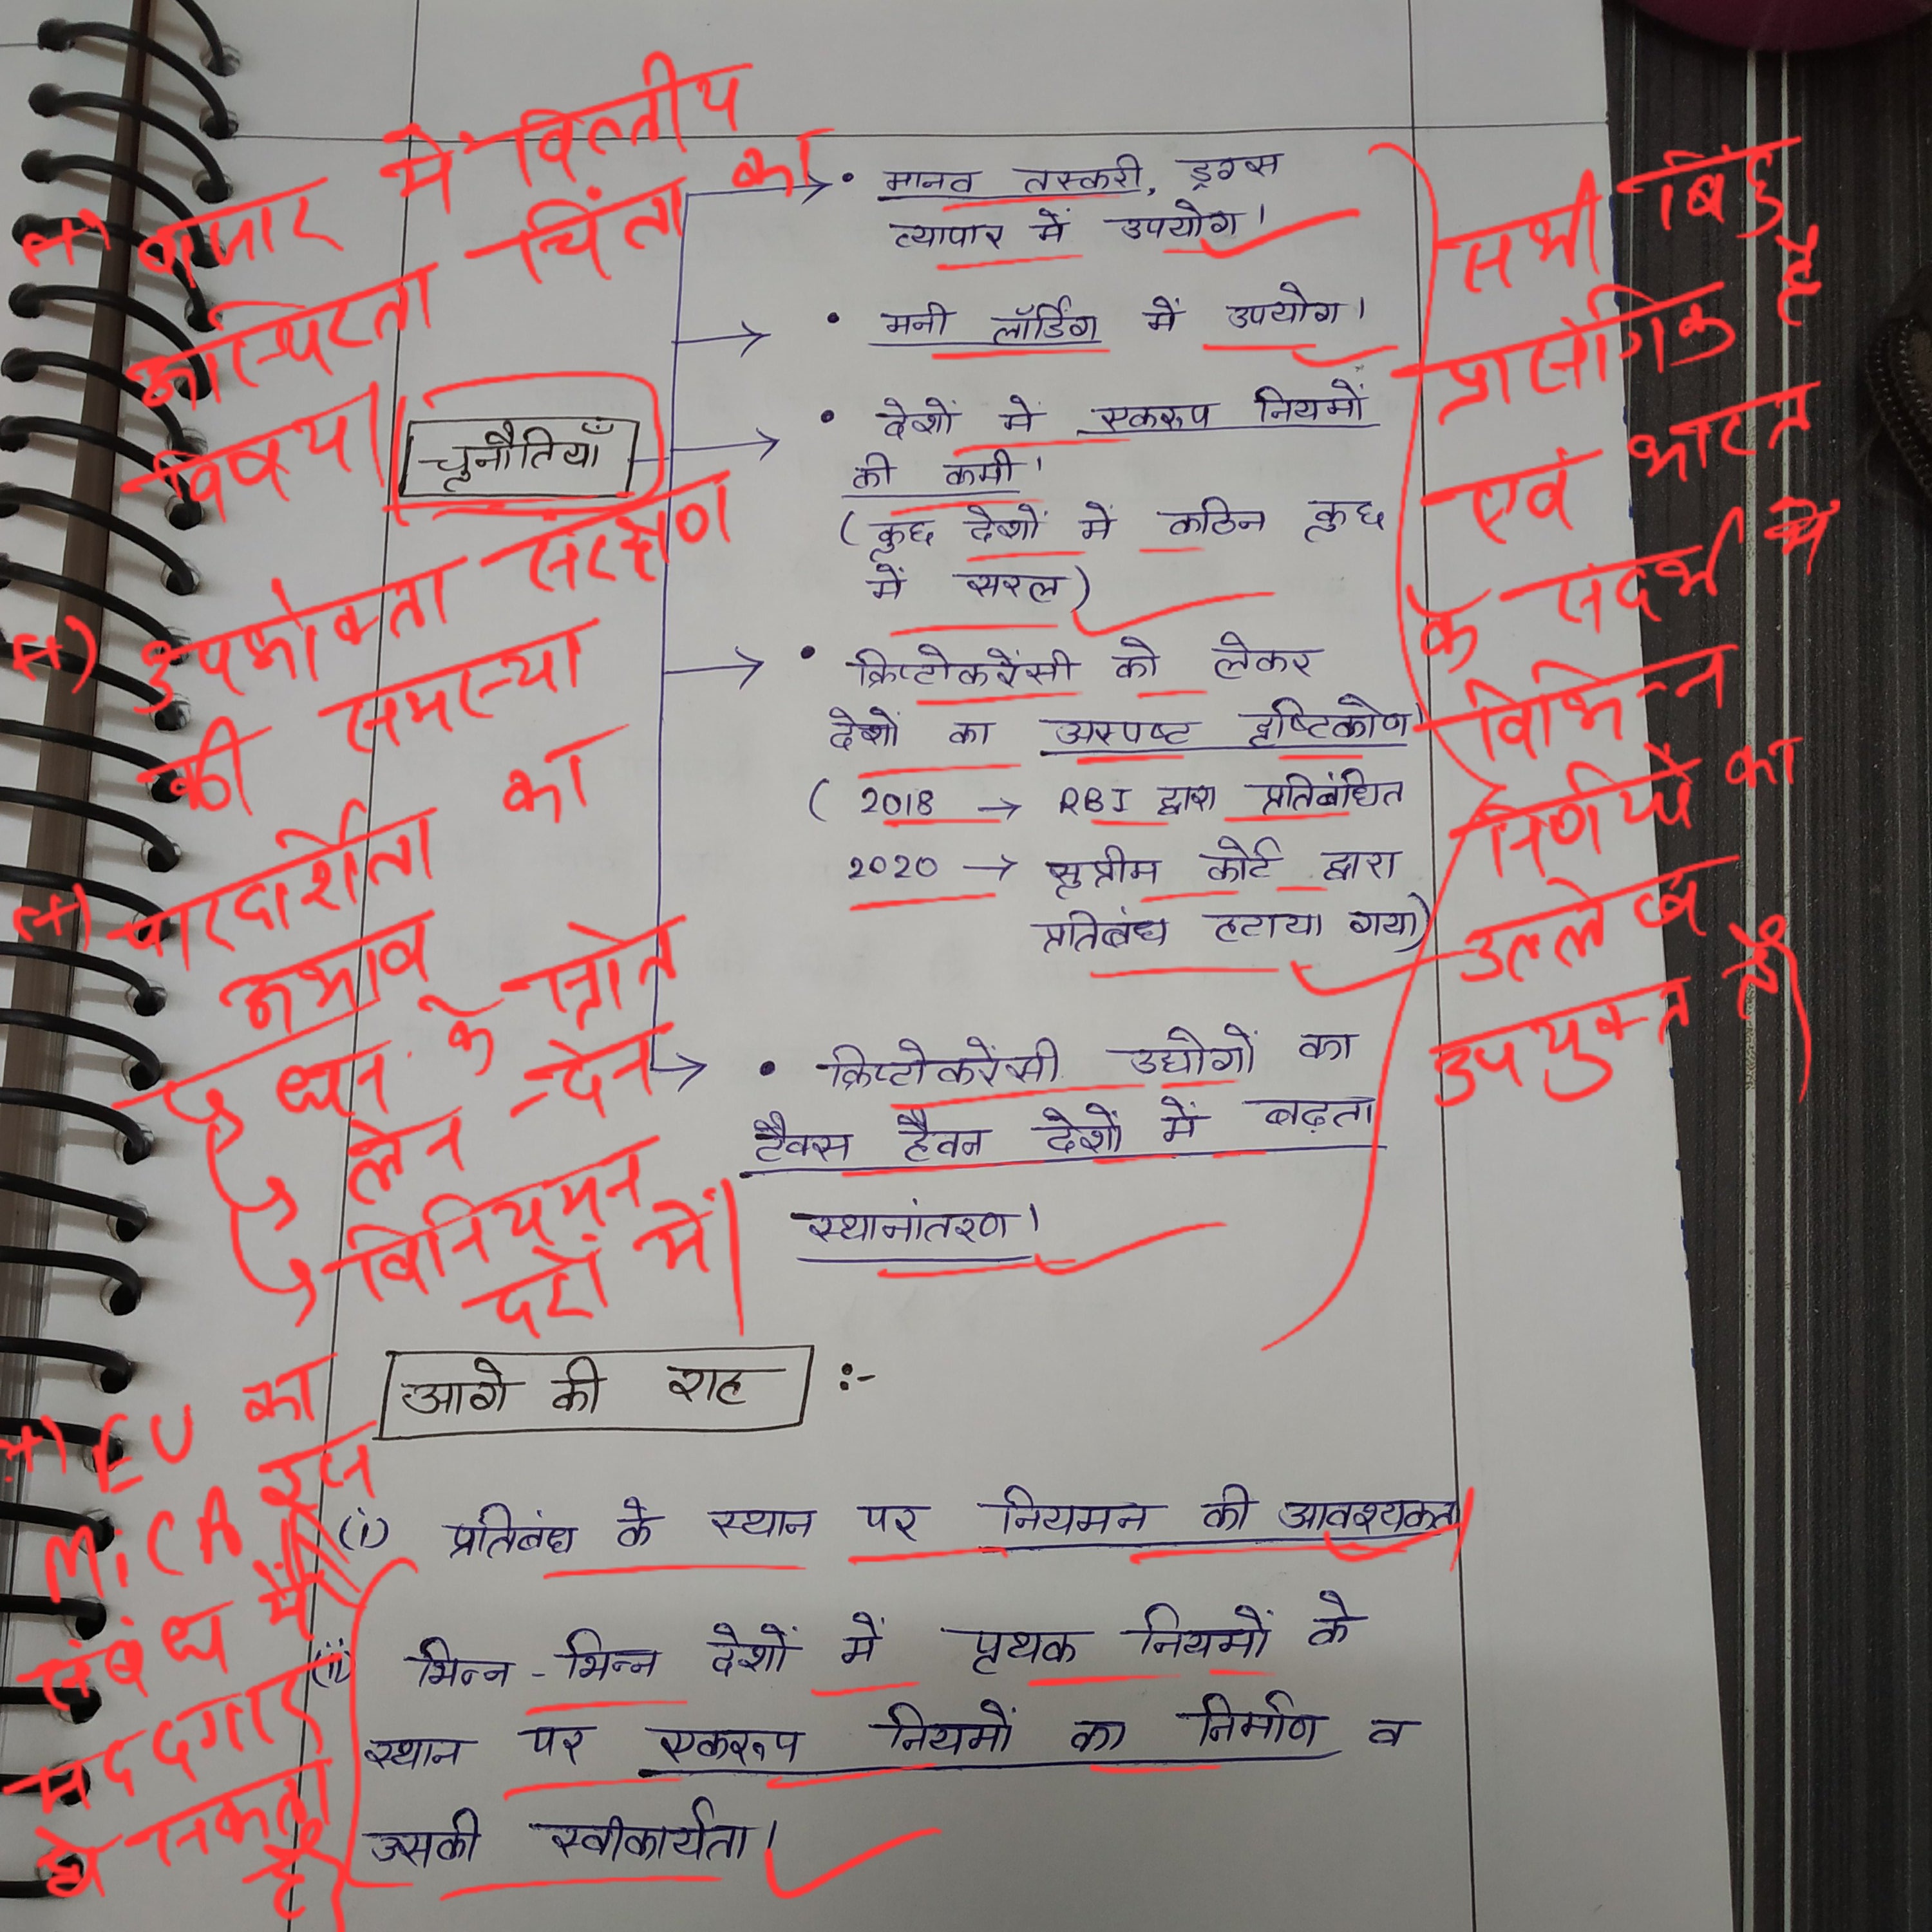 (+) बाजार में वित्तीय
अस्थिरता चिंता का
विषय।
(+) उपभोक्ता संरक्षण
की समस्या
(+) पारदर्शिता का
अभाव
→ धन के स्रोत
→ लेन-देन
→ विनियमन
दरों में।
(+) EU का
MiCA इस
संबंध में
मददगार
हो सकता
है।
चुनौतियाँ
• मानव तस्करी, ड्रग्स
व्यापार में उपयोग।
• मनी लॉर्डिंग में उपयोग।
• देशों में एकरुप नियमों
की कमी।
(कुछ देशों में कठिन कुछ
में सरल)
• क्रिप्टोकरेंसी को लेकर
देशों का अस्पष्ट दृष्टिकोण
(2018 → RBI द्वारा प्रतिबंधित
2020 → सुप्रीम कोर्ट द्वारा
प्रतिबंध हटाया गया)
• क्रिप्टोकरेंसी उद्योगों का
टैक्स हैवन देशों में बढ़ता
स्थानांतरण।
सभी बिंदु
प्रासंगिक हैं
एवं भारत
के संदर्भ में
विभिन्न
निर्णयों का
उल्लेख
उपयुक्त है।
आगे की राह :-
(i) प्रतिबंध के स्थान पर नियमन की आवश्यकता
(ii) भिन्न-भिन्न देशों में पृथक नियमों के
स्थान पर एकरुप नियमों का निर्माण व
उसकी स्वीकार्यता।